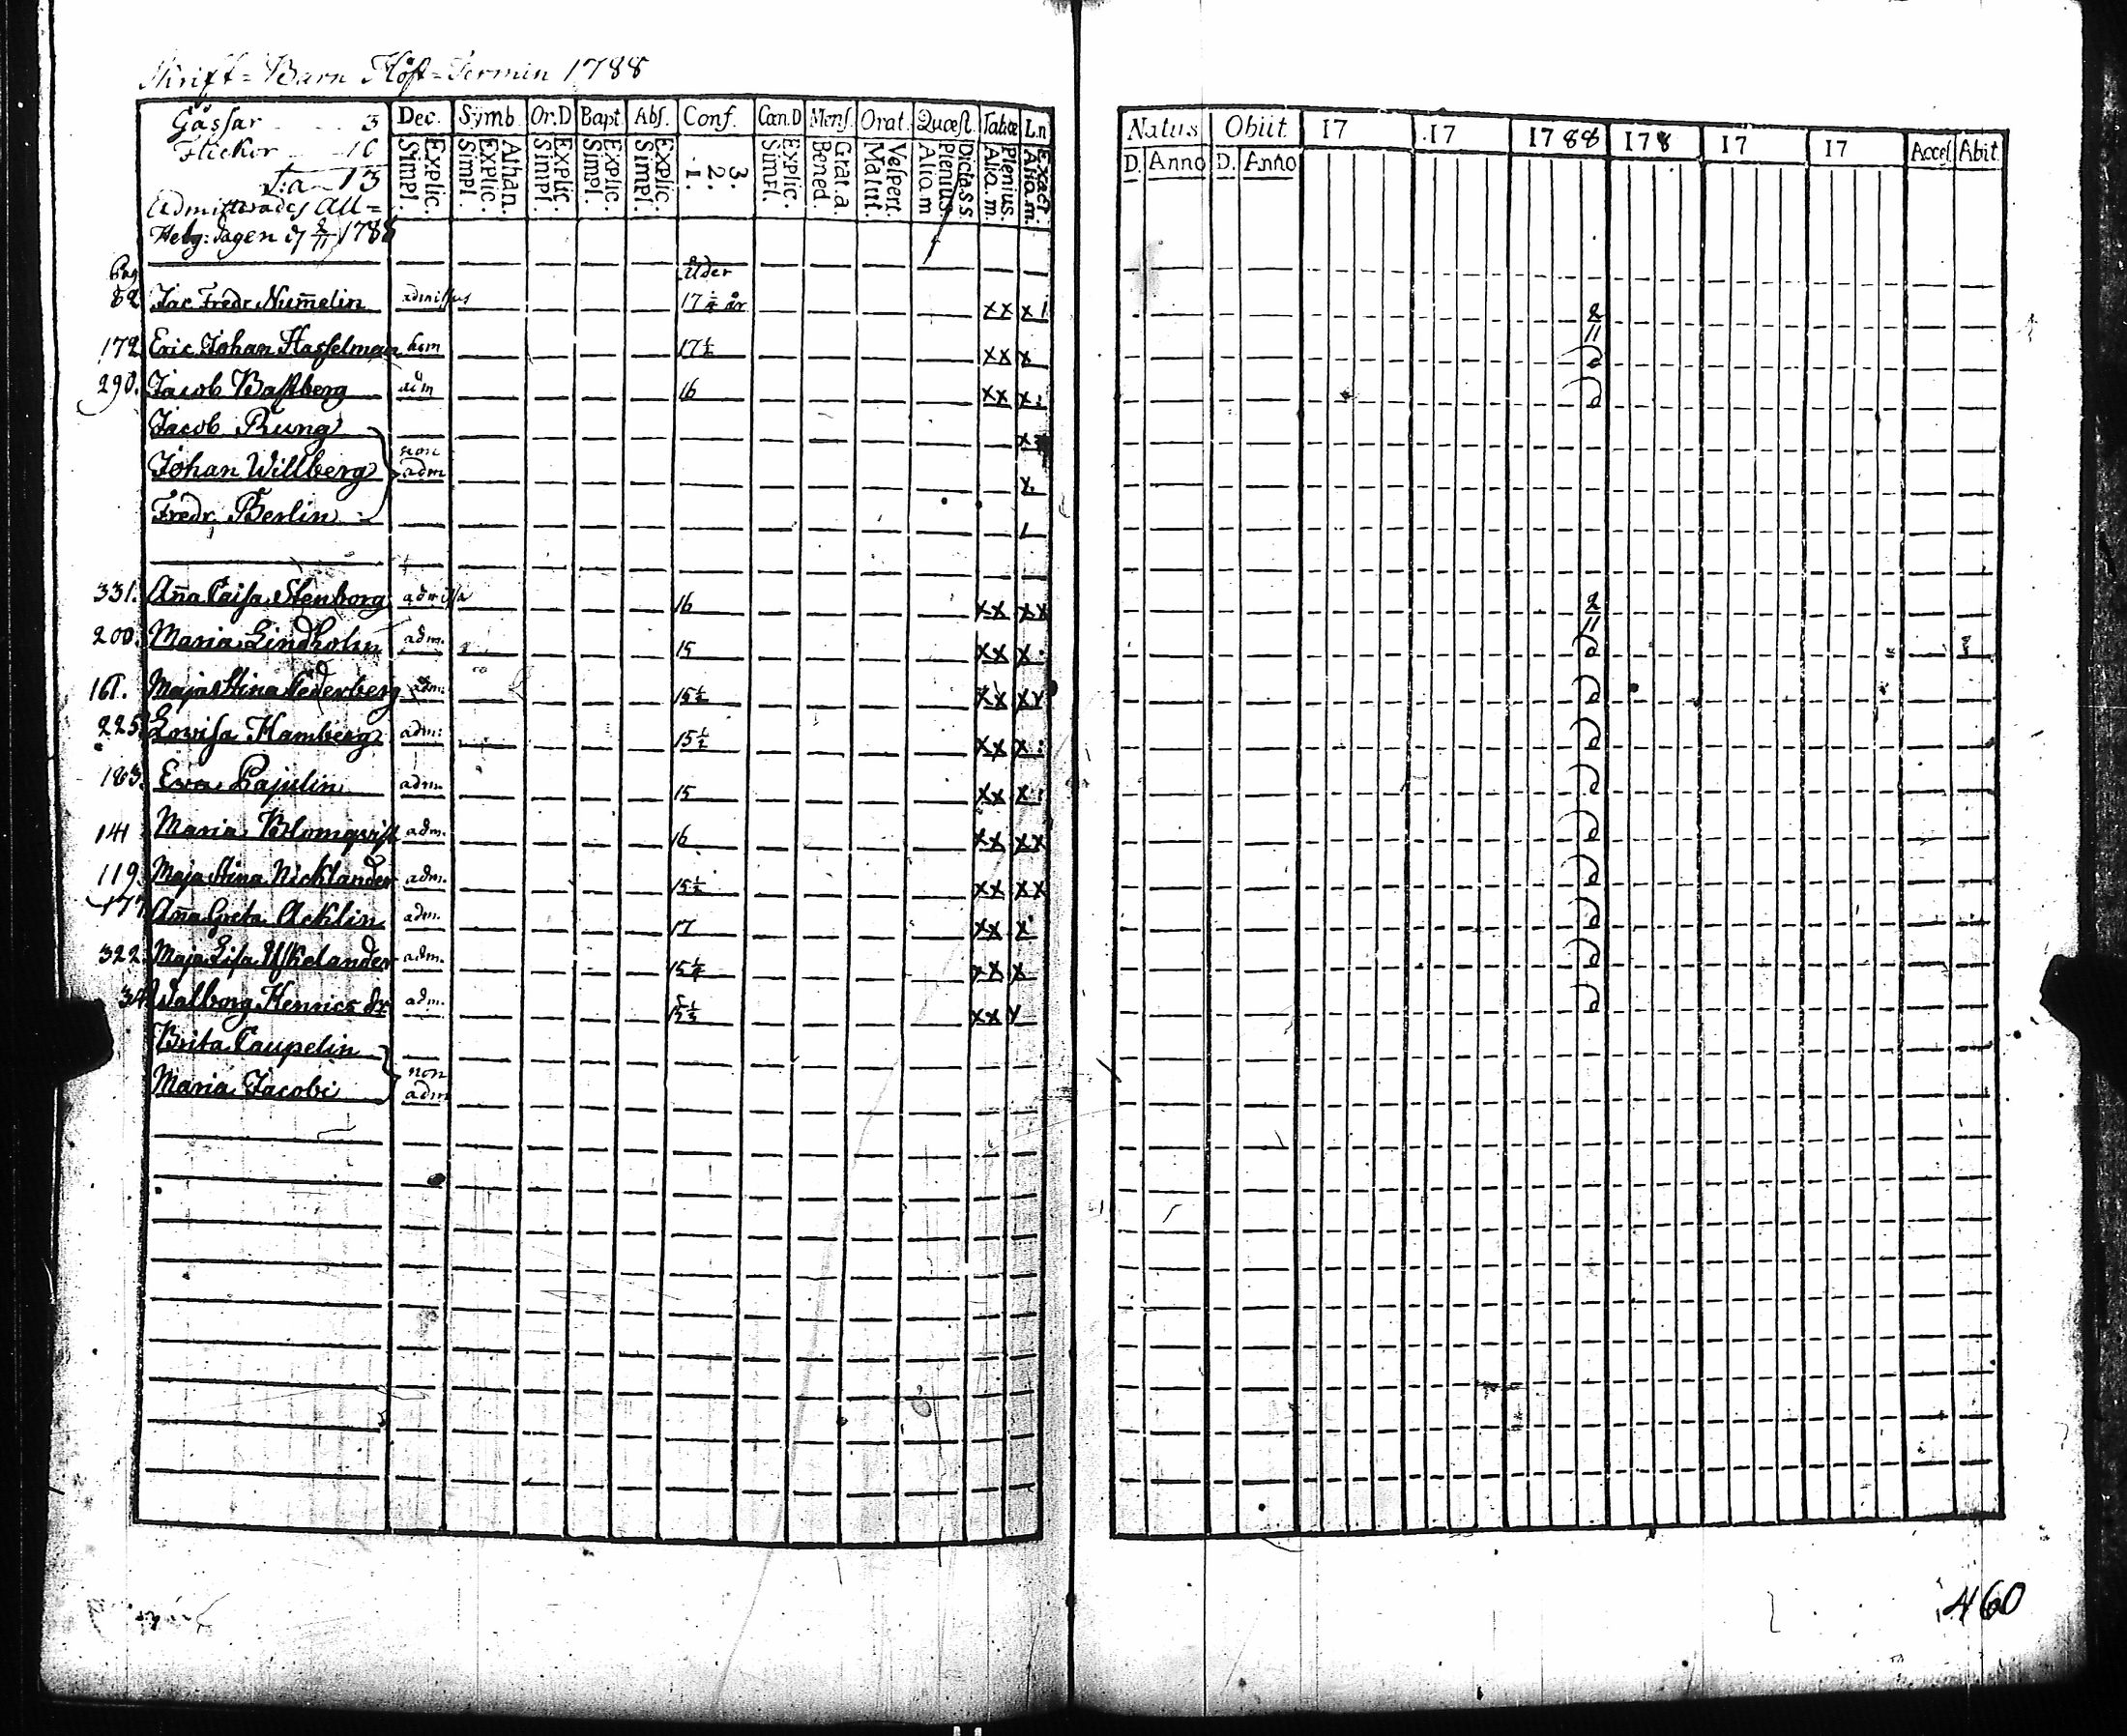 Skrift-Barn Höst-Termin 1788
Gåssar 3
Flickor 10
S:a 13
Admitterades All=
Helg: dagen d 2/11 1788
Dec. Symb. Or.D Bapt. Abs. Conf. Cœn.D Mens. Orat. Quæst. Tabæ L.n
Simpl. Explic. Simpl. Explic. Athan. Simpl. Explic. Simpl. Explic. Simpl. Explic. 1. 2. 3. Simpl. Explic. Bened. Grat. a. Matut. Vespert. Alio. m Plenius. Dicta S.S. Alio. m. Plenius. Alio. m. Exact.
Natus Obiit. 17 17 1788 178 17 17 Accel. Abit.
D. Anno D. Anno
Pag Ålder
82 Jac Fredr Num̄elin admissus 17 1/4 år xx x 2/11
172 Eric Johan Hasselman 17 1/2 xx x d
290. Jacob Bastberg adm 16 xx x d
Jacob Rung x
Johan Willberg non adm x
Fredr. Berlin
331. Añna Caisa Stenborg admissa 16 xx xx 2/11
200. Maria Lindholm adm. 15 xx x d
161. Maja Stina Cederberg adm: 15 1/2 xx xx d
225 Lovisa Hamberg adm: 15 1/2 xx x d
163. Eva Pajulin adm. 15 xx x d
141 Maria Blomqvist adm. 16 xx xx d
119. Maja Stina Nicklander adm. 15 1/2 xx xx d
177 Añna Greta Acklin adm. 17 xx x d
322. Maja Lisa Uskelander adm. 15 1/4 xx x d
34 Walborg Henrics dr adm. xx x d
Brita Caupelin
Maria Jacobi non adm
460